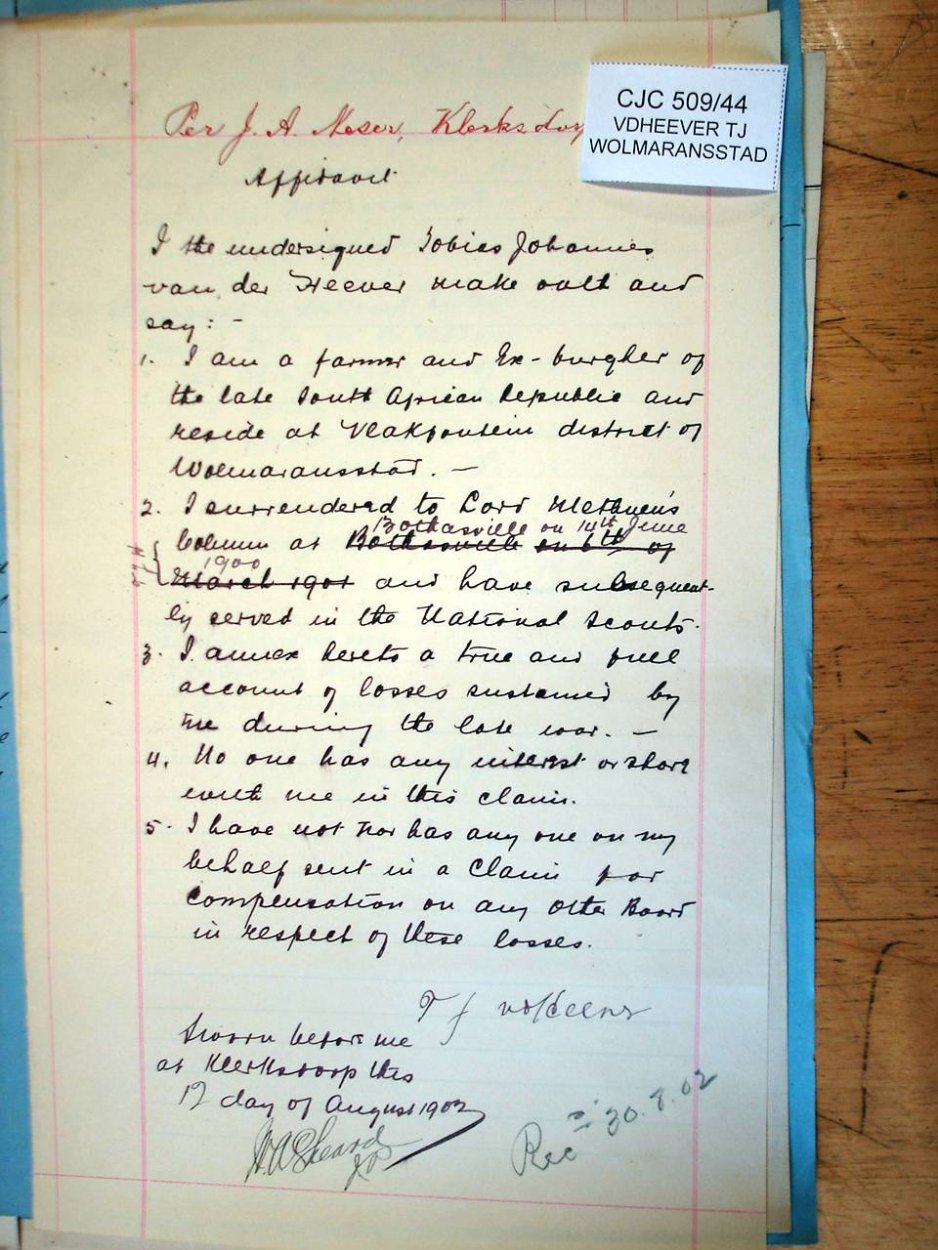 CJC 509/44
VDHEEVER TJ
WOLMARANSSTAD
Per J. A. Neser, Klerksdorp
Affidavit
I the undersigned Tobias Johannes
van der Heever make oath and
say: -
1. I am a farmer and Ex-burgher of
the late South African Republic and
reside at Vlakfontein district of
Wolmaransstad. —
2. I surrendered to Lord Methuen's
Bothasville on 14th June
Column at Bothasville on 6th of
1900
March 1901 and have subsequent-
ly served in the National Scouts.
3. I annex hereto a true and full
account of losses sustained by
me during the late war. —
4. No one has any interest or share
with me in this claim.
5. I have not nor has any one on my
behalf sent in a Claim for
compensation on any other Board
in respect of these losses.
T J vdHeever
Sworn before me
at Klerksdorp this
12 day of August 1902
Sheard
JP
Rec 30.8.02